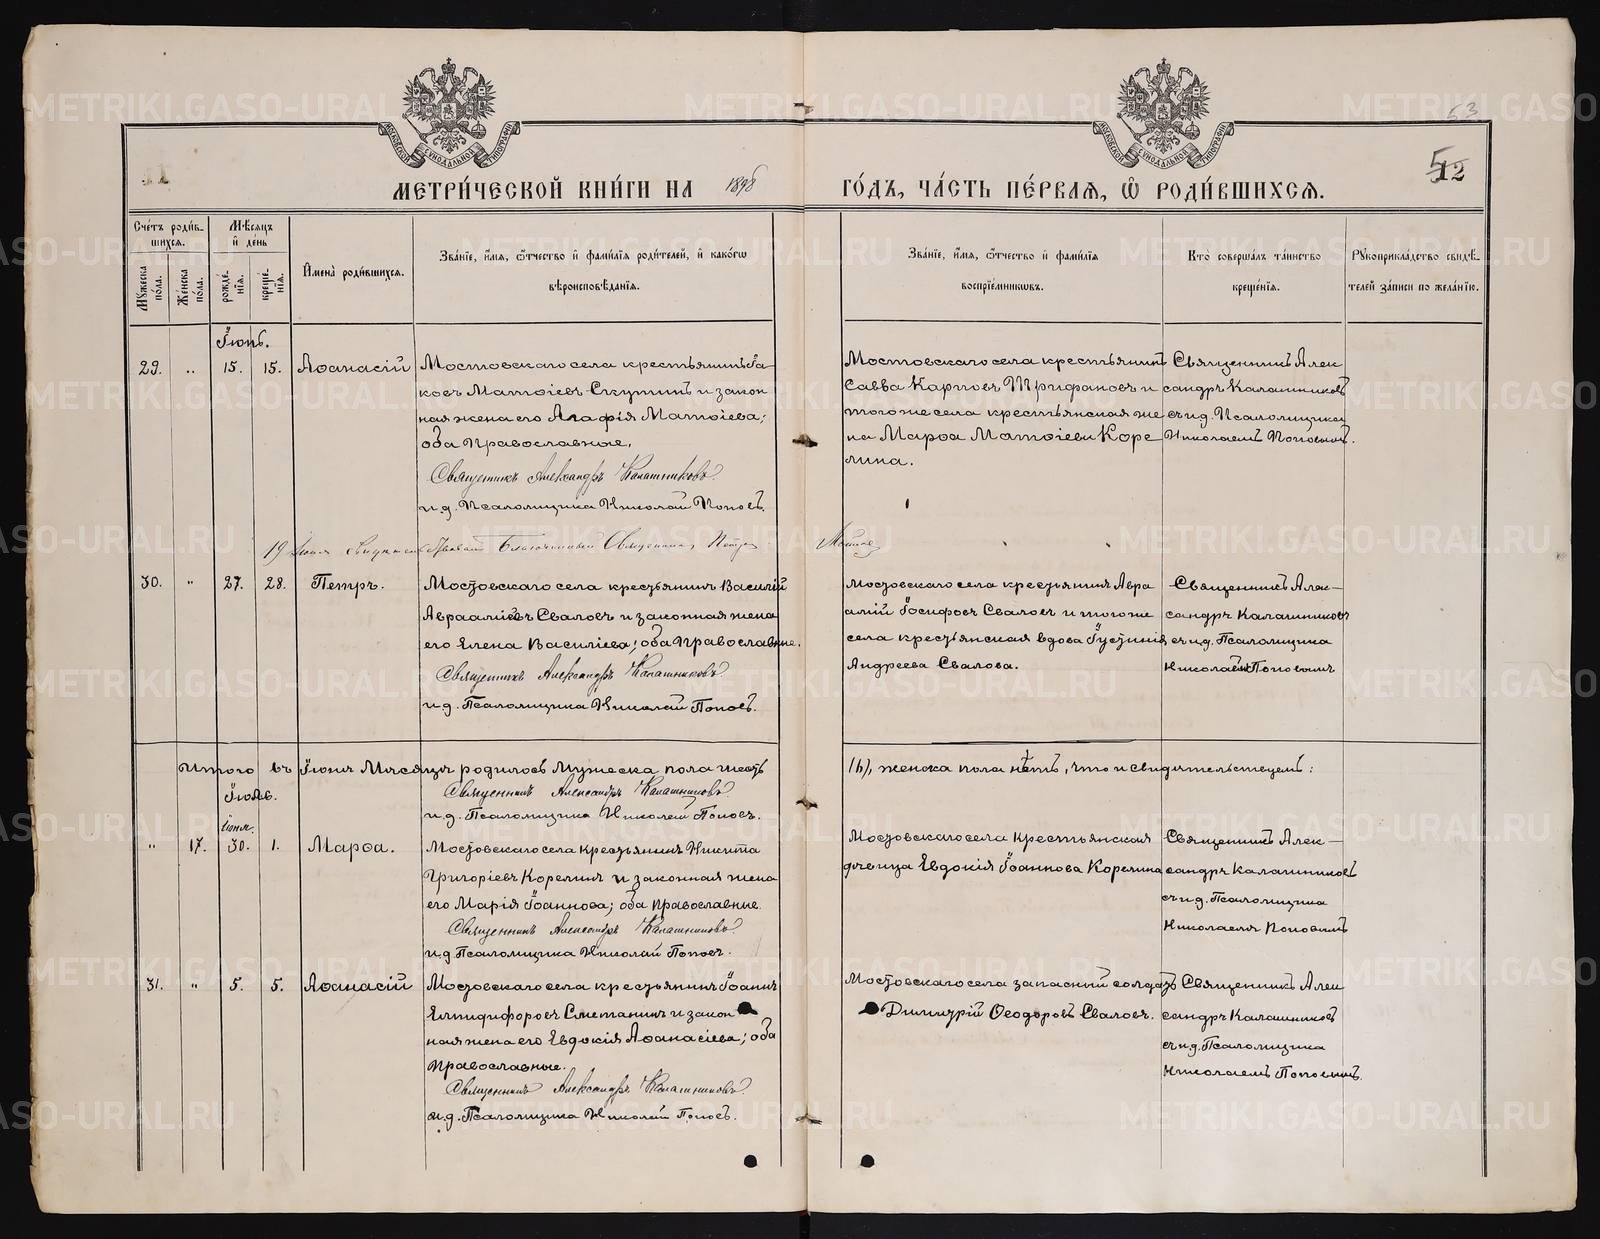 53
512
МЕТРИ́ЧЕСКОЙ КНИ́ГИ НА 1898 ГО́ДЪ, ЧА́СТЬ ПЕ́РВАЯ, Ѿ РОДИ́ВШИХСЯ.
Сче́тъ роди́в-
шихся.
Мѣ́сяцъ
и҆ де́нь
Мꙋ́жеска
по́ла.
Же́нска
по́ла.
рожде́-
нїѧ.
креще́-
нїѧ.
И҆мена̀ роди́вшихся.
Зва́нїе, и҆́мѧ, ѻ҆́тчество и҆ фами́лїѧ роди́телей, и҆ како́гѡ
вѣроисповѣ́данїѧ.
Зва́нїе, и҆́мѧ, ѻ҆́тчество и҆ фами́лїѧ
воспрїе́мникѡвъ.
Кто̀ соверша́лъ та́инство
креще́нїѧ.
Рꙋкоприкла́дство свидѣ́-
телей за́писи по жела́нїю.
Іюнь.
29. „ 15. 15. Аѳанасій
Мостовскаго села крестьянинъ Іа-
ковъ Матѳіевъ Скутинъ и закон
ная жена его Агафія Матѳіева;
оба православные.
Священникъ Александръ Калашниковъ
и.д. Псаломщика Николай Поповъ.
Мостовскаго села крестьянинъ
Савва Карповъ Трифановъ и
тогоже села крестьянская же
на Марѳа Матѳіева Коре
лина.
Священникъ Алек
сандръ Калашниковъ
съ и.д. Псаломщика
Николаемъ Поповымъ.
19 Благочинный Священникъ Петръ
30. „ 27. 28. Петръ.
Мостовскаго села крестьянинъ Василій
Авраамiевъ Сваловъ и законная жена
его Елена Василіева; оба православные.
Священникъ Александръ Калашниковъ
и.д. Псаломщика Николай Поповъ.
Мостовскаго села крестьянинъ Авра
амій Іосифовъ Сваловъ и тогоже
села крестьянская вдова Іустинія
Андреева Свалова.
Священникъ Алек-
сандръ Калашниковъ
съ и.д. Псаломщика
Николаемъ Поповымъ
Итого въ Іюнѣ Мѣсяцѣ родилось Мужеска пола шесть (6), женска пола нѣтъ, что и свидѣтельствуемъ:
Священникъ Александръ Калашниковъ
и.д. Псаломщика Николай Поповъ.
Іюль.
Іюня.
„ 17. 30. 1. Марѳа.
Мостовскаго села крестьянинъ Никита
Григоріевъ Корелинъ и законная жена
его Марія Іоаннова; оба православные.
Священникъ Александръ Калашниковъ
и.д. Псаломщика Николай Поповъ.
Мостовскаго села крестьянская
дѣвица Евдокія Іоаннова Корелина
Священникъ Алек-
сандръ Калашниковъ
съ и.д. Псаломщика
Николаемъ Поповымъ
31. „ 5. 5. Аѳанасій
Мостовскаго села крестьянинъ Іоаннъ
Елпидифоровъ Сметанинъ и закон
ная жена его Евдокія Аѳанасіева; оба
православные.
Священникъ Александръ Калашниковъ
и.д. Псаломщика Николай Поповъ.
Мостовскаго села запасный солдатъ
Димитрій Ѳеодоровъ Сваловъ.
Священникъ Алек
сандръ Калашниковъ
съ и.д. Псаломщика
Николаемъ Поповымъ.